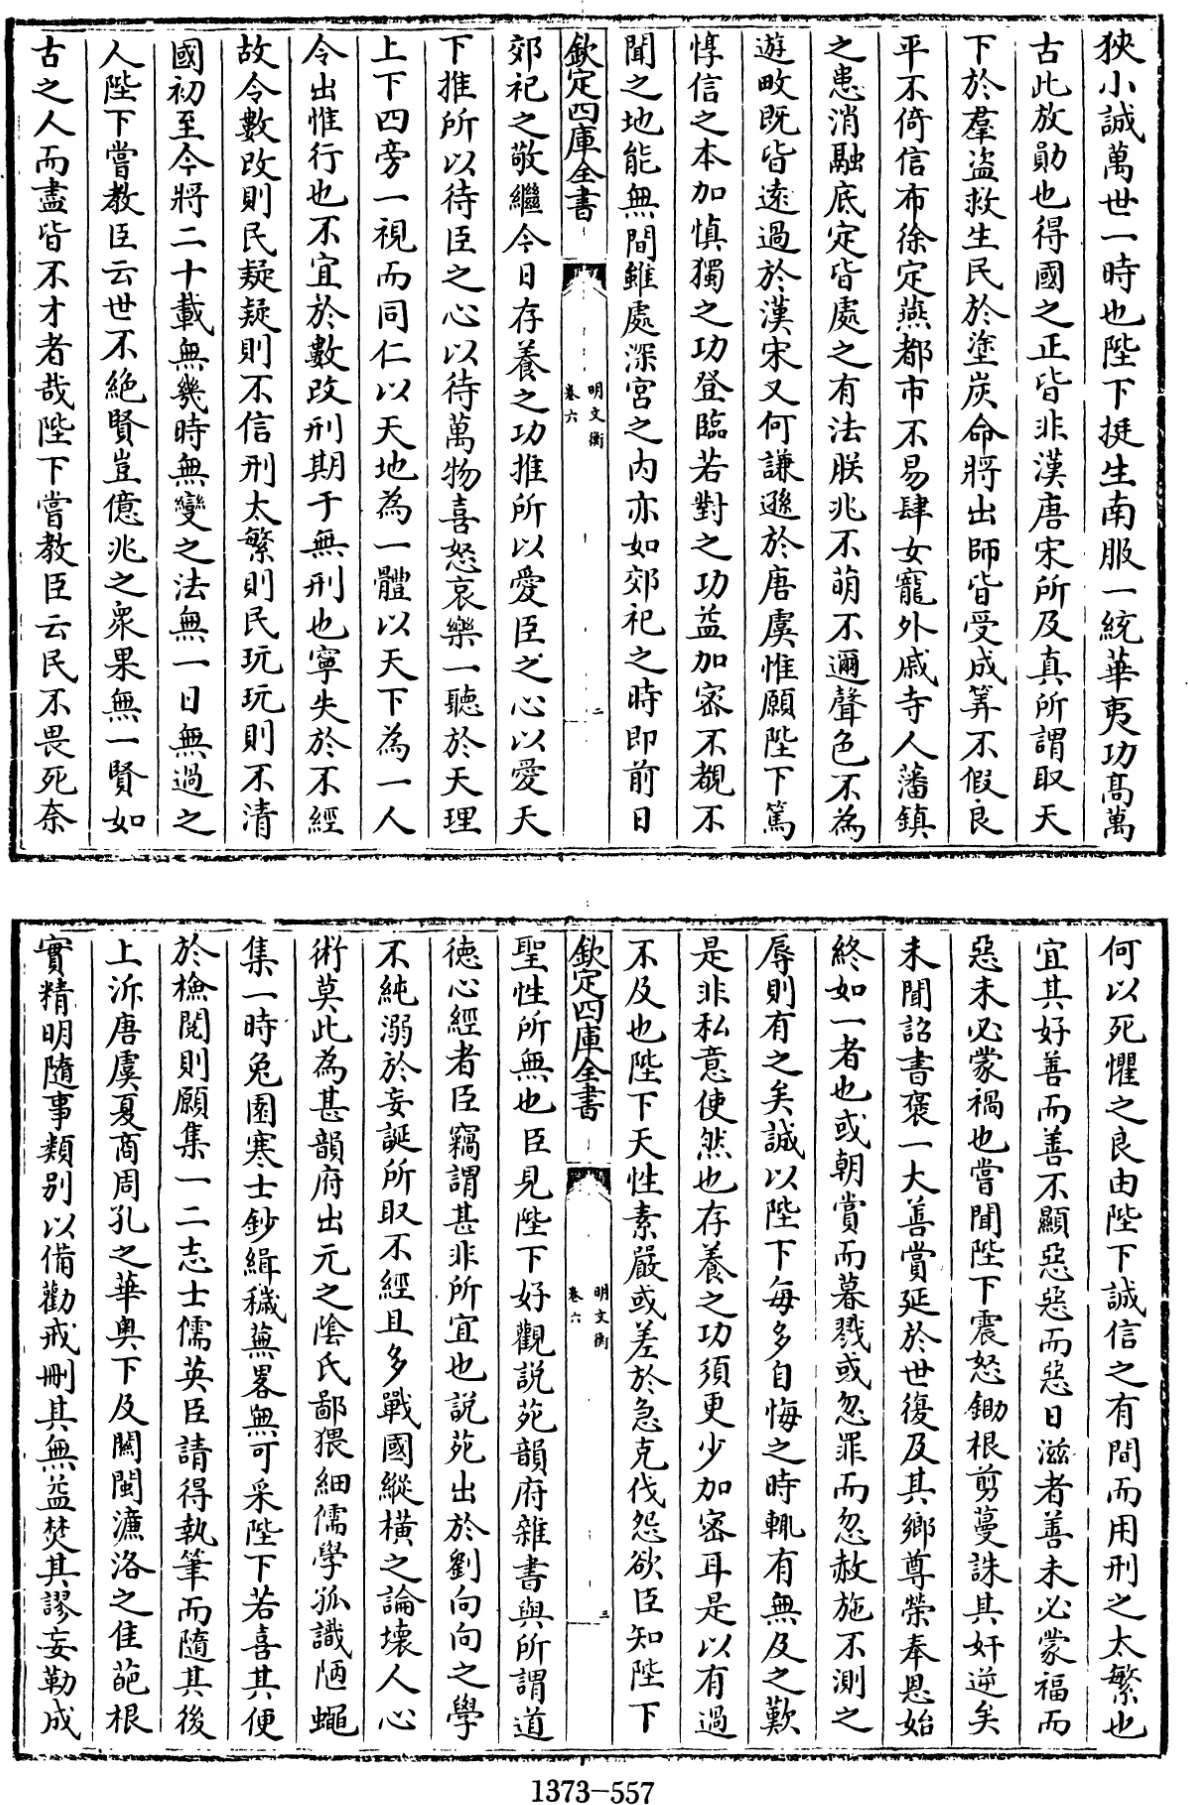 狹小誠萬世一時也陛下挺生南服一統華夷功髙萬
古此放勛也得國之正皆非漢唐宋所及真所謂取天
下於羣盗救生民於塗炭命將出師皆受成筭不假良
平不倚信布徐定燕都市不易肆女寵外戚寺人藩鎮
之患消融底定皆處之有法朕兆不萌不邇聲色不為
遊畋既皆遠過於漢宋又何謙遜於唐虞惟願陛下篤
惇信之本加慎獨之功登臨若對之功益加密不覩不
聞之地能無間雖處深宮之内亦如郊祀之時即前日
欽定四庫全書 明文衡 卷六 二
郊祀之敬繼今日存養之功推所以愛臣之心以愛天
下推所以待臣之心以待萬物喜怒哀樂一聽於天理
上下四旁一視而同仁以天地為一體以天下為一人
令出惟行也不宜於數改刑期于無刑也寧失於不經
故令數改則民疑疑則不信刑太繁則民玩玩則不清
國初至今將二十載無幾時無變之法無一日無過之
人陛下嘗教臣云世不絶賢豈億兆之衆果無一賢如
古之人而盡皆不才者哉陛下嘗教臣云民不畏死奈
何以死懼之良由陛下誠信之有間而用刑之太繁也
宜其好善而善不顯惡惡而惡日滋者善未必蒙福而
惡未必蒙禍也嘗聞陛下震怒鋤根剪蔓誅其奸逆矣
未聞詔書褒一大善賞延於世復及其鄉尊榮奉恩始
終如一者也或朝賞而暮戮或忽罪而忽赦施不測之
辱則有之矣誠以陛下每多自悔之時輒有無及之歎
是非私意使然也存養之功須更少加密耳是以有過
不及也陛下天性素嚴或差於急克伐怨欲臣知陛下
欽定四庫全書 明文衡 卷六 三
聖性所無也臣見陛下好觀説苑韻府雜書與所謂道
徳心經者臣竊謂甚非所宜也説苑出於劉向向之學
不純溺於妄誕所取不經且多戰國縱橫之論壞人心
術莫此為甚韻府出元之陰氏鄙猥細儒學孤識陋蠅
集一時兔園寒士鈔緝穢蕪畧無可采陛下若喜其便
於檢閲則願集一二志士儒英臣請得執筆而隨其後
上泝唐虞夏商周孔之華奥下及關閩濂洛之佳葩根
實精明隨事類别以備勸戒刪其無益焚其謬妄勒成
1373-557